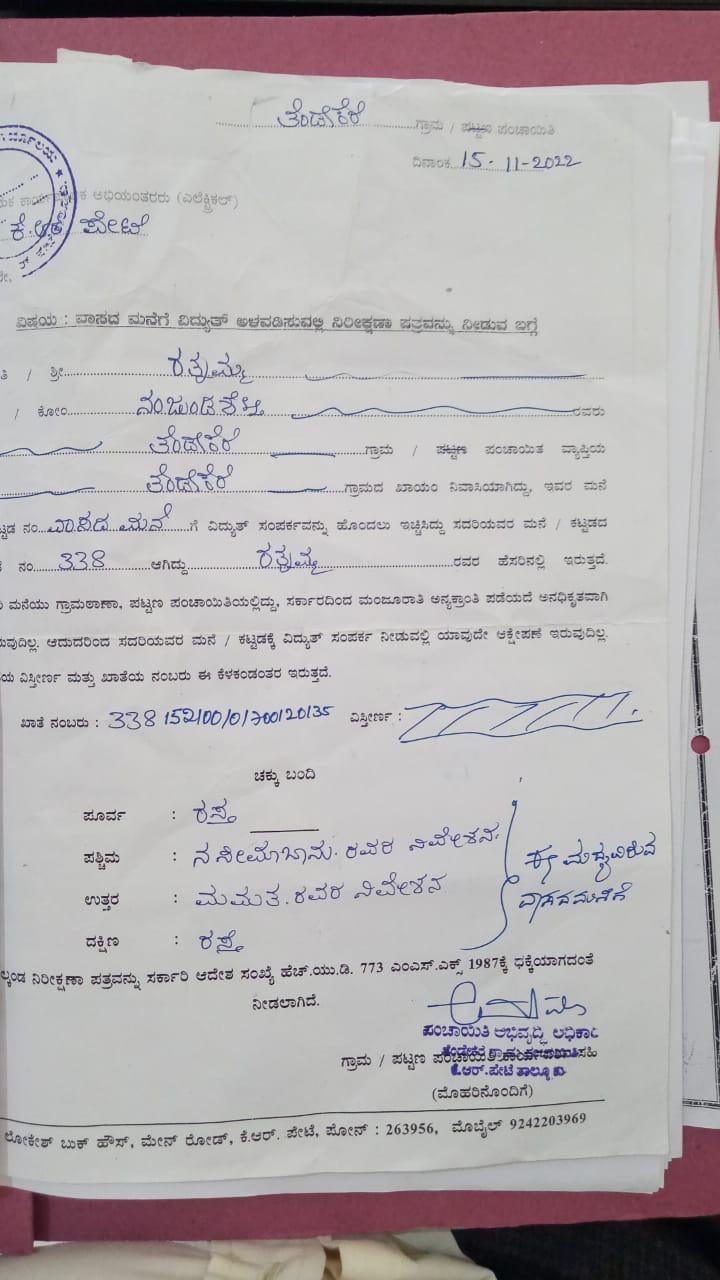 ತೆಂಡೇಕೆರೆ ಗ್ರಾಮ / ಪಟ್ಟಣ ಪಂಚಾಯಿತಿ
ದಿನಾಂಕ 15-11-2022
ಕ ಅಭಿಯಂತರರು (ಎಲೆಕ್ಟ್ರಿಕಲ್)
ಕೆ.ಆರ್ ಪೇಟೆ
ವಿಷಯ : ವಾಸದ ಮನೆಗೆ ವಿದ್ಯುತ್ ಅಳವಡಿಸುವಲ್ಲಿ ನಿರೀಕ್ಷಣಾ ಪತ್ರವನ್ನು ನೀಡುವ ಬಗ್ಗೆ
ತಿ / ಶ್ರೀ ರತ್ನಮ್ಮ
/ ಕೋಂ ನಂಜುಂಡಶೆಟ್ಟಿ ರವರು
ತೆಂಡೇಕೆರೆ ಗ್ರಾಮ / ಪಟ್ಟಣ ಪಂಚಾಯಿತ ವ್ಯಾಪ್ತಿಯ
ತೆಂಡೇಕೆರೆ ಗ್ರಾಮದ ಖಾಯಂ ನಿವಾಸಿಯಾಗಿದ್ದು, ಇವರ ಮನೆ
ಟ್ಟಡ ನಂ ವಾಸದ ಮನೆ ಗೆ ವಿದ್ಯುತ್ ಸಂಪರ್ಕವನ್ನು ಹೊಂದಲು ಇಚ್ಚಿಸಿದ್ದು ಸದರಿಯವರ ಮನೆ / ಕಟ್ಟಡದ
ನಂ 338 ಆಗಿದ್ದು ರತ್ನಮ್ಮ ರವರ ಹೆಸರಿನಲ್ಲಿ ಇರುತ್ತದೆ.
ಮನೆಯು ಗ್ರಾಮಠಾಣಾ, ಪಟ್ಟಣ ಪಂಚಾಯಿತಿಯಲ್ಲಿದ್ದು, ಸರ್ಕಾರದಿಂದ ಮಂಜೂರಾತಿ ಅನ್ಯಕ್ರಾಂತಿ ಪಡೆಯದೆ ಅನಧಿಕೃತವಾಗಿ
ರುವುದಿಲ್ಲ. ಆದುದರಿಂದ ಸದರಿಯವರ ಮನೆ / ಕಟ್ಟಡಕ್ಕೆ ವಿದ್ಯುತ್ ಸಂಪರ್ಕ ನೀಡುವಲ್ಲಿ ಯಾವುದೇ ಆಕ್ಷೇಪಣೆ ಇರುವುದಿಲ್ಲ.
ಯ ವಿಸ್ತೀರ್ಣ ಮತ್ತು ಖಾತೆಯ ನಂಬರು ಈ ಕೆಳಕಂಡಂತರ ಇರುತ್ತದೆ.
ಖಾತೆ ನಂಬರು : 338 152100/0/700120135 ವಿಸ್ತೀರ್ಣ :
ಚಕ್ಕು ಬಂದಿ
ಪೂರ್ವ : ರಸ್ತೆ
ಪಶ್ಚಿಮ : ನಸೀಮಾಬಾನು. ರವರ ನಿವೇಶನ
ಉತ್ತರ : ಮಮತ. ರವರ ನಿವೇಶನ
ದಕ್ಷಿಣ : ರಸ್ತೆ
ಈ ಮಧ್ಯವಿರುವ
ವಾಸದಮನೆಗೆ
ಲ್ಕಂಡ ನಿರೀಕ್ಷಣಾ ಪತ್ರವನ್ನು ಸರ್ಕಾರಿ ಆದೇಶ ಸಂಖ್ಯೆ ಹೆಚ್.ಯು.ಡಿ. 773 ಎಂಎಸ್.ಎಕ್ಸ್ 1987ಕ್ಕೆ ಧಕ್ಕೆಯಾಗದಂತೆ
ನೀಡಲಾಗಿದೆ.
ಪಂಚಾಯಿತಿ ಅಭಿವೃದ್ಧಿ ಅಧಿಕಾರಿ
ಗ್ರಾಮ / ಪಟ್ಟಣ ಪಂಚಾಯಿತಿ ಸಹಿ
ಕೆ.ಆರ್.ಪೇಟೆ ತಾಲ್ಲೂಕು
(ಮೊಹರಿನೊಂದಿಗೆ)
ಲೋಕೇಶ್ ಬುಕ್ ಹೌಸ್, ಮೇನ್ ರೋಡ್, ಕೆ.ಆರ್. ಪೇಟೆ, ಪೋನ್ : 263956, ಮೊಬೈಲ್ 9242203969